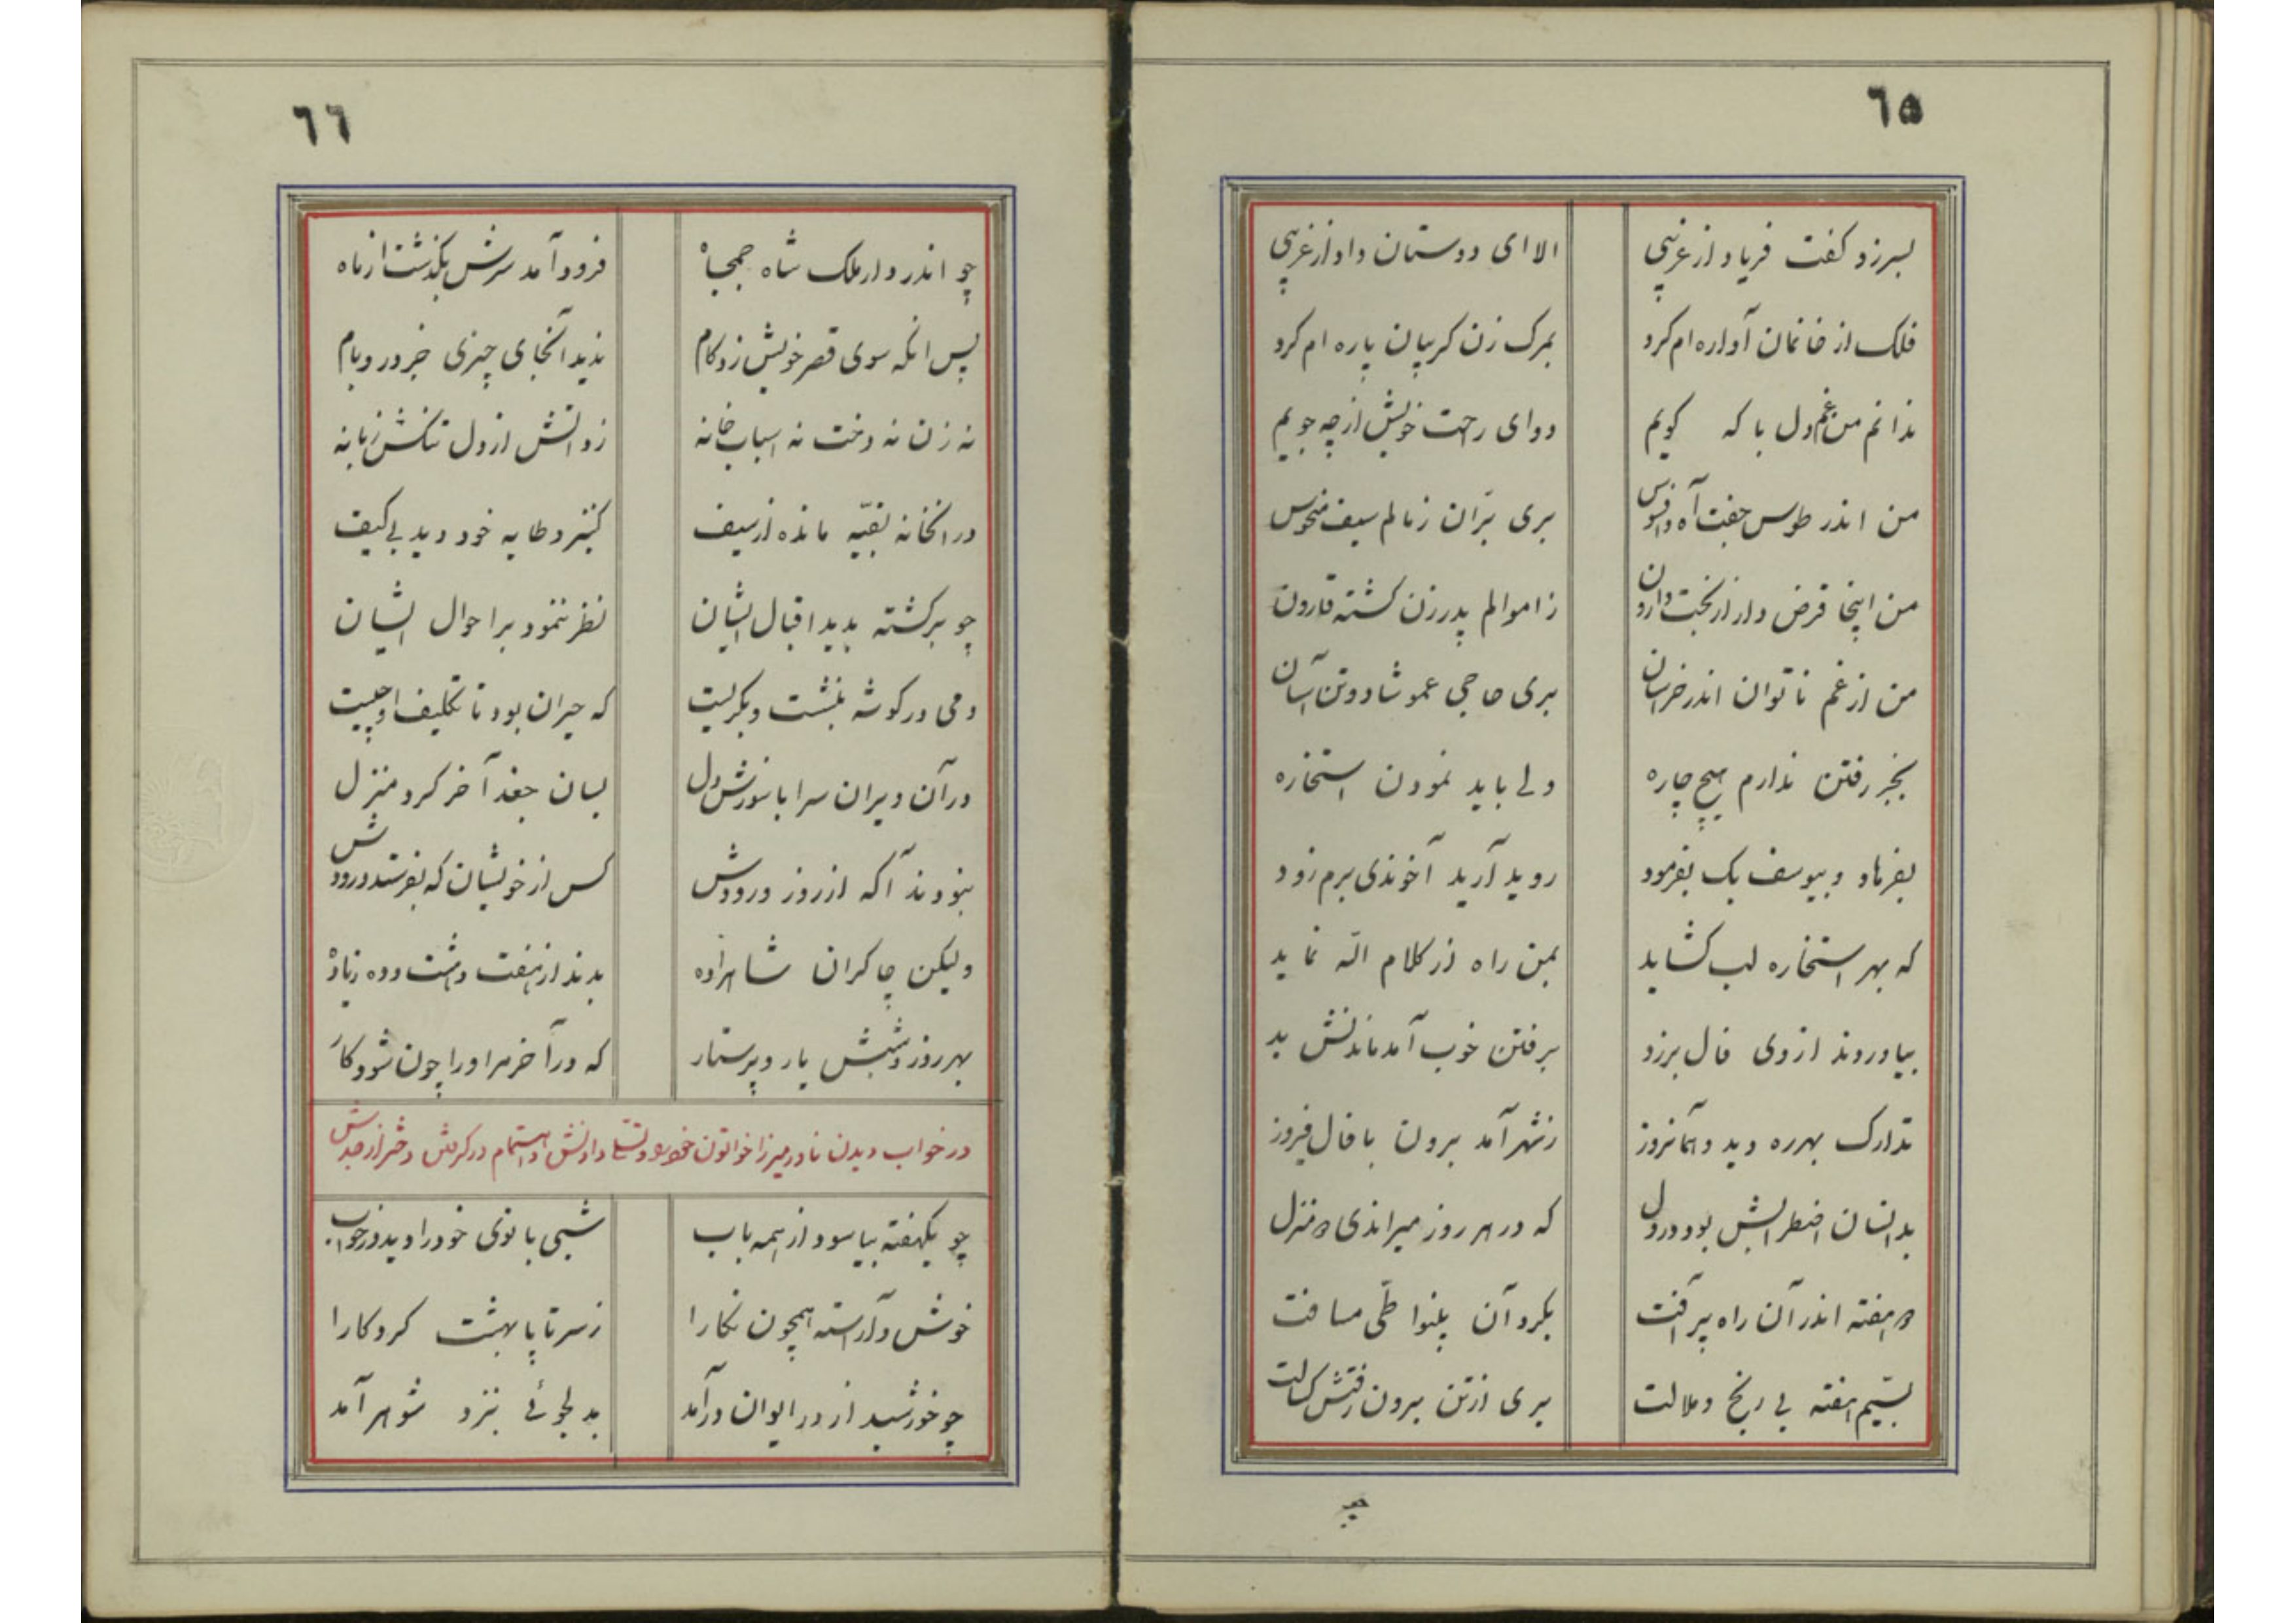 ٦٥
بسر زد کفت فریاد از غریبی الا ای دوستان داد از غریبی
فلک از خانمان آواره ام کرد بمرک زن کریبان پاره ام کرد
ندانم من غم دل با که کویم دوای رحت خویش از چه جویم
من اندر طوس جفت آه و افسوس بری بران ز مالم سیف منحوس
من اینجا قرض دار از بخت وارون ز اموالم پدر زن کشته قارون
من از غم ناتوان اندر خراسان بری حاجی عمو شاد و تن آسان
بجز رفتن ندارم هیچ چاره ولی باید نمودن استخاره
بفرهاد و بیوسف بک بفرمود روید آرید آخوندی برم زود
که بهر استخاره لب کشاید بمن راه از کلام الله نماید
بیاوردند از وی فال برزد برفتن خوب آمد ماندنش بد
تدارک بهر ره دید و همانروز ز شهر آمد برون با فال فیروز
بدانسان اضطرابش بود در دل که در هر روز میراندی دو منزل
دو هفته اندر آن راه پر آفت بکرد آن بینوا طی مسافت
بسیم هفته بی رنج و ملالت بری از تن برون رفتش کسالت
چو
٦٦
چو اندر دار ملک شاه جمجاه فرود آمد سرش بکذشت از ماه
پس انکه سوی قصر خویش زد کام ندید آنجای چیزی جز در و بام
نه زن نه دخت نه اسباب خانه زد آتش از دل تنکش زبانه
در انخانه بقیه مانده از سیف کنیز و طایه خود دید بی کیف
چو برکشته بدید اقبال ایشان نظر ننمود بر احوال ایشان
دمی در کوشه بنشست و بکریست که حیران بود تا تکلیف او چیست
در آن ویران سرا با سوزش دل بسان جغد آخر کرد منزل
نبودند آکه از روز ورودش کس از خویشان که بفرستد درودش
ولیکن چاکران شاهزاده بدند از هفت و هشت و ده زیاده
بهر روز و شبش یار و پرستار که در آخر مر او را چون شود کار
در خواب دیدن نادر میرزا خواتون خود و تسلی دادنش و اهتمام در کرفتن دختر از جدش
چو یکهفته بیاسود از همه باب شبی بانوی خود را دید در خواب
خوش و آراسته همچون نکارا ز سر تا پا بهشت کردکارا
چو خورشید از در ایوان درآمد بدلجوئی بنزد شوهر آمد